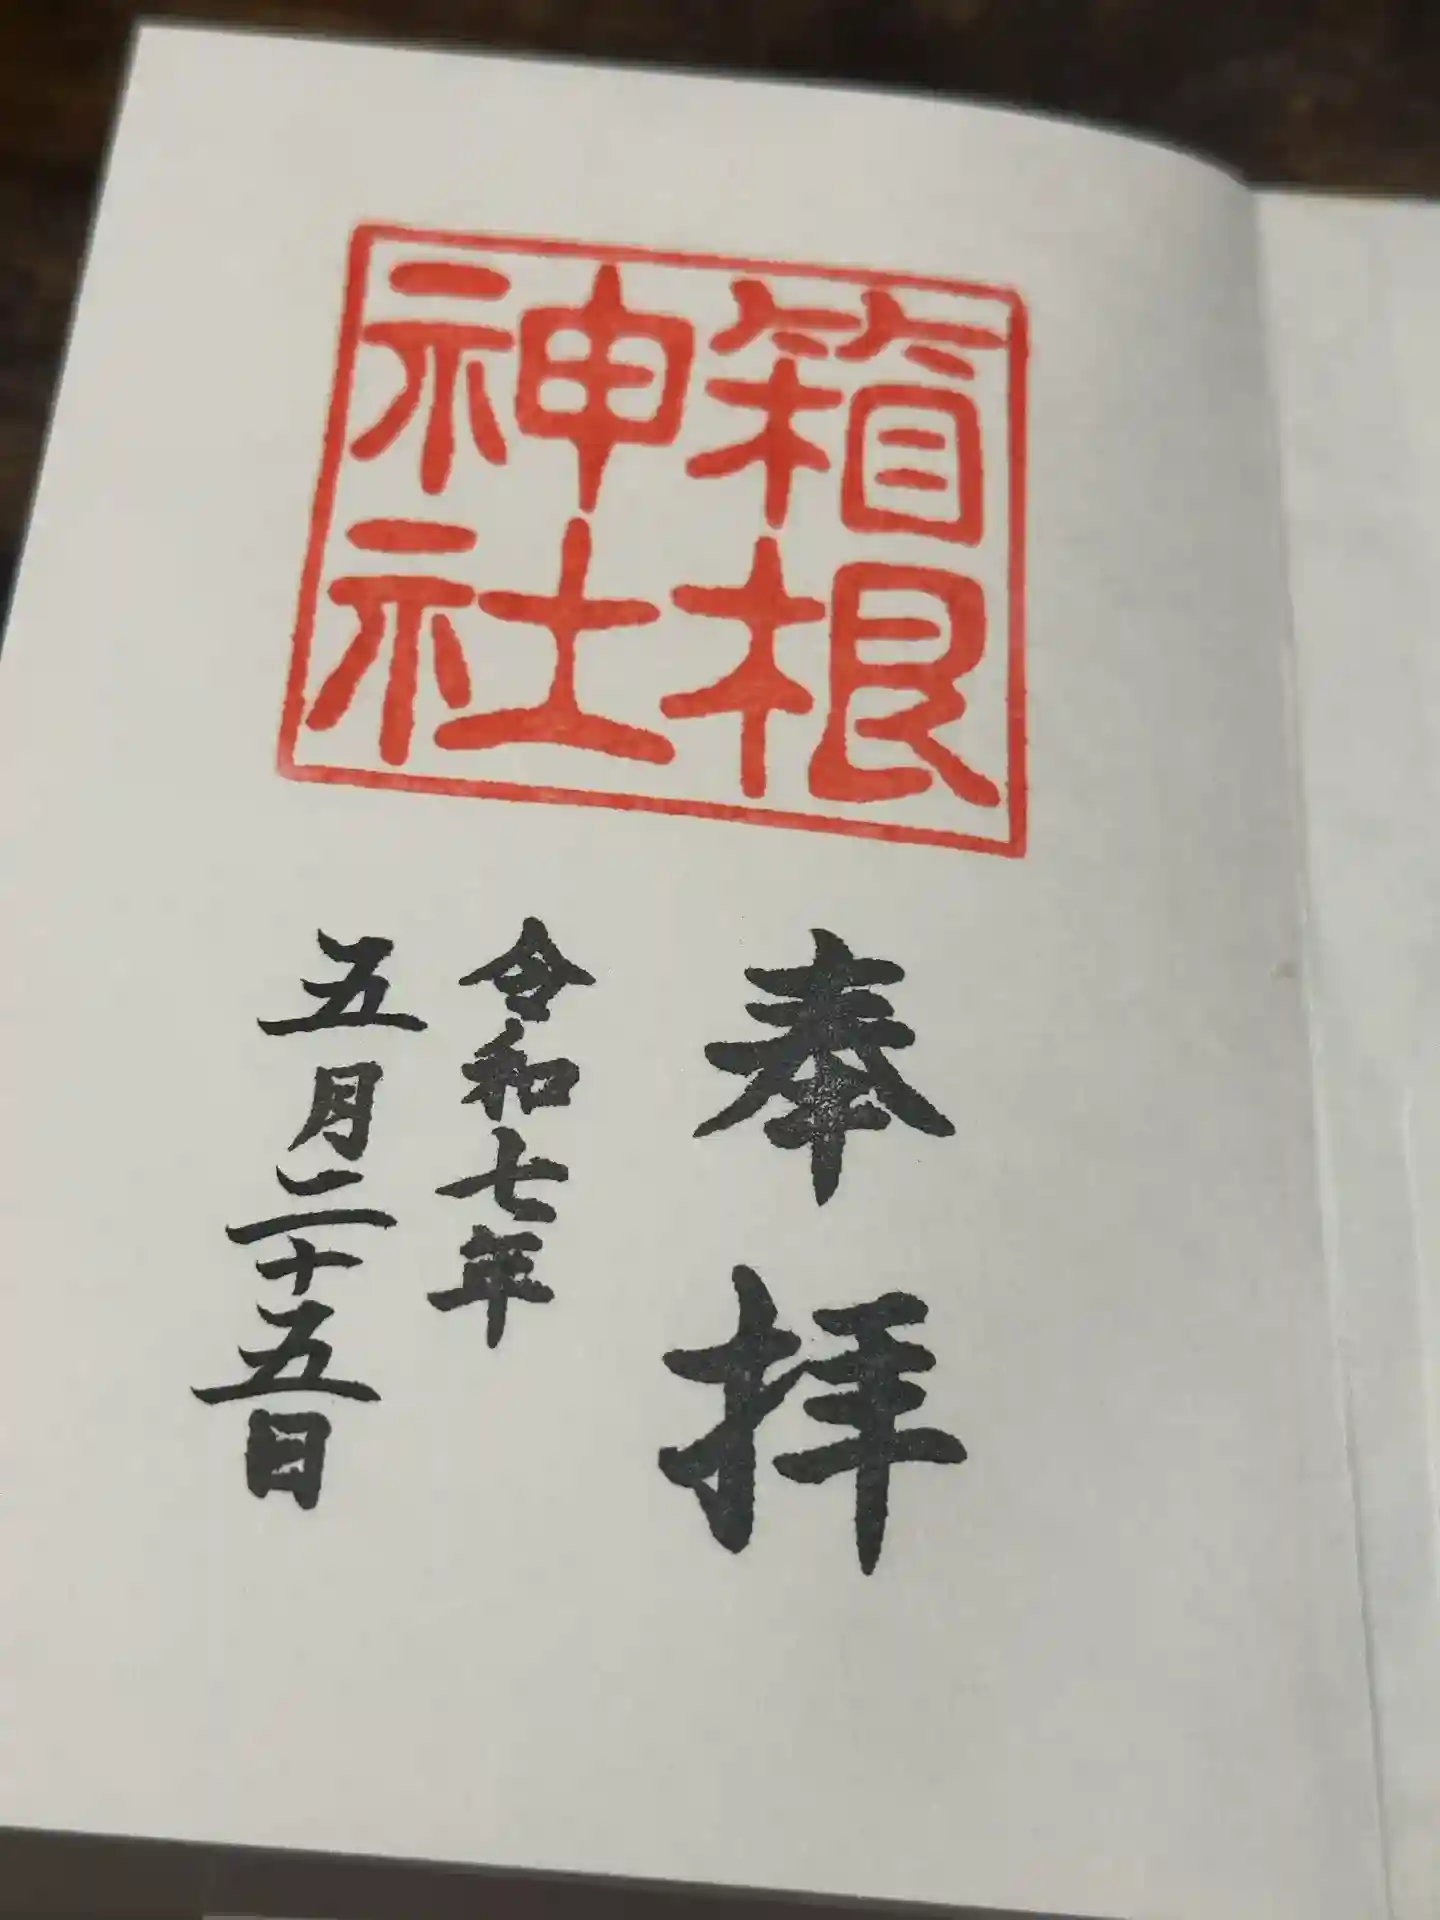 箱根
神社
奉拝
令和七年
五月二十五日